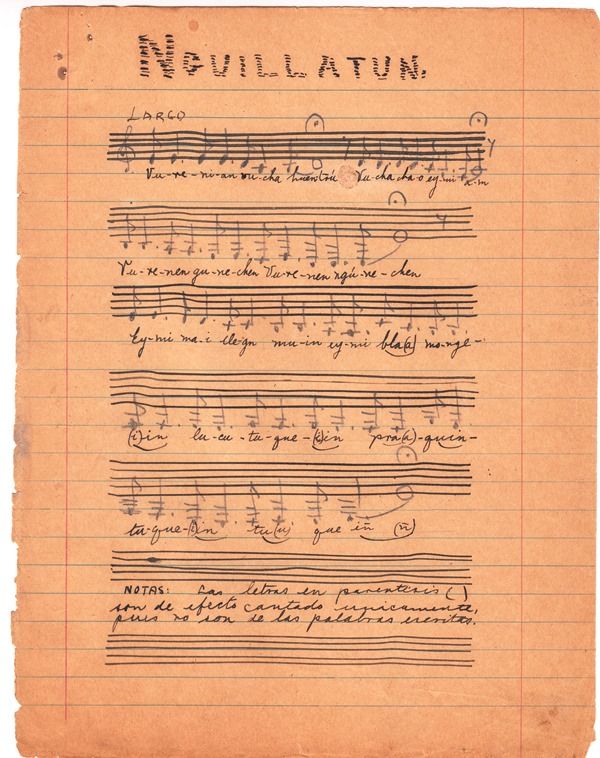 NGUILLATUN.
LARGO
Vu-re-ni-an vu-cha huentrú Vu-cha cha-o ey-mi
Vu-re-nen gu-ne-chen Vu-re-nen ngú-ne-chen
Ey-mi ma-i ele-gn mu-in ey-mi bla(a) mo-nge-
(i)in lu-cu-tu-que-(i)in pra(a)-quin-
tu-que-(i)in tu(u) que iñ (ñ)
NOTAS: Las letras en parentesis ( )
son de efecto cantado unicamente,
pues no son de las palabras escritas.